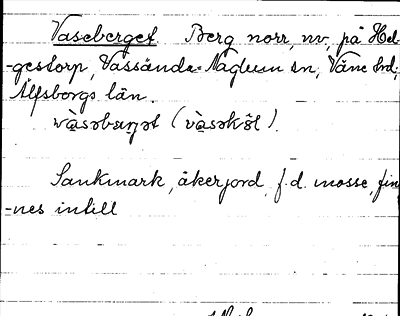 Vaseberget Berg norr, nv, på Hel-
-gestorp, Vassända-Naglum sn, Väne hd,
Älfsborgs län.
Sankmark, åkerjord, f.d. mosse, fin
-nes intill